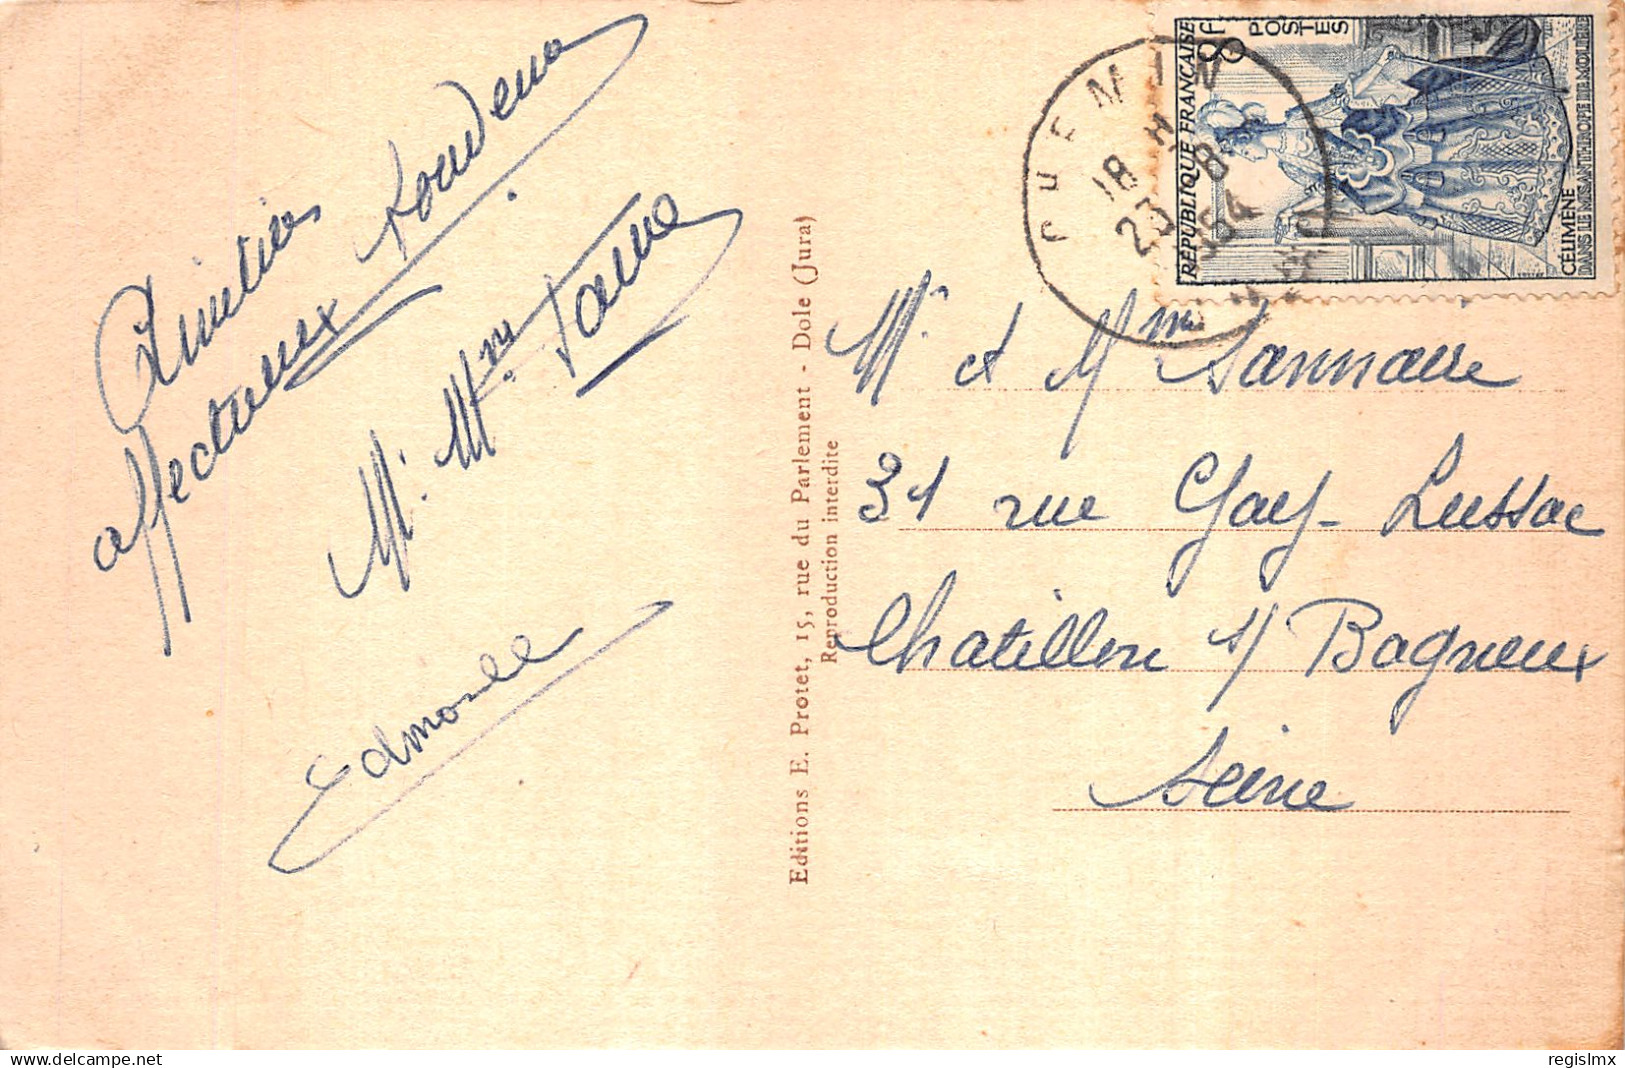 Amitiés
affectueux
Mr. Mme
Edmonde
Editions E. Protet, 15, rue du Parlement - Dole (Jura)
Reproduction interdite
RÉPUBLIQUE FRANÇAISE
8F
POSTES
CÉLIMÈNE
DANS LE MISANTHROPE DE MOLIÈRE
18 H
23 8
54
Mr et Mme Sannaire
31 rue Gay-Lussac
Chatillon s/ Bagneux
Seine
regislmx